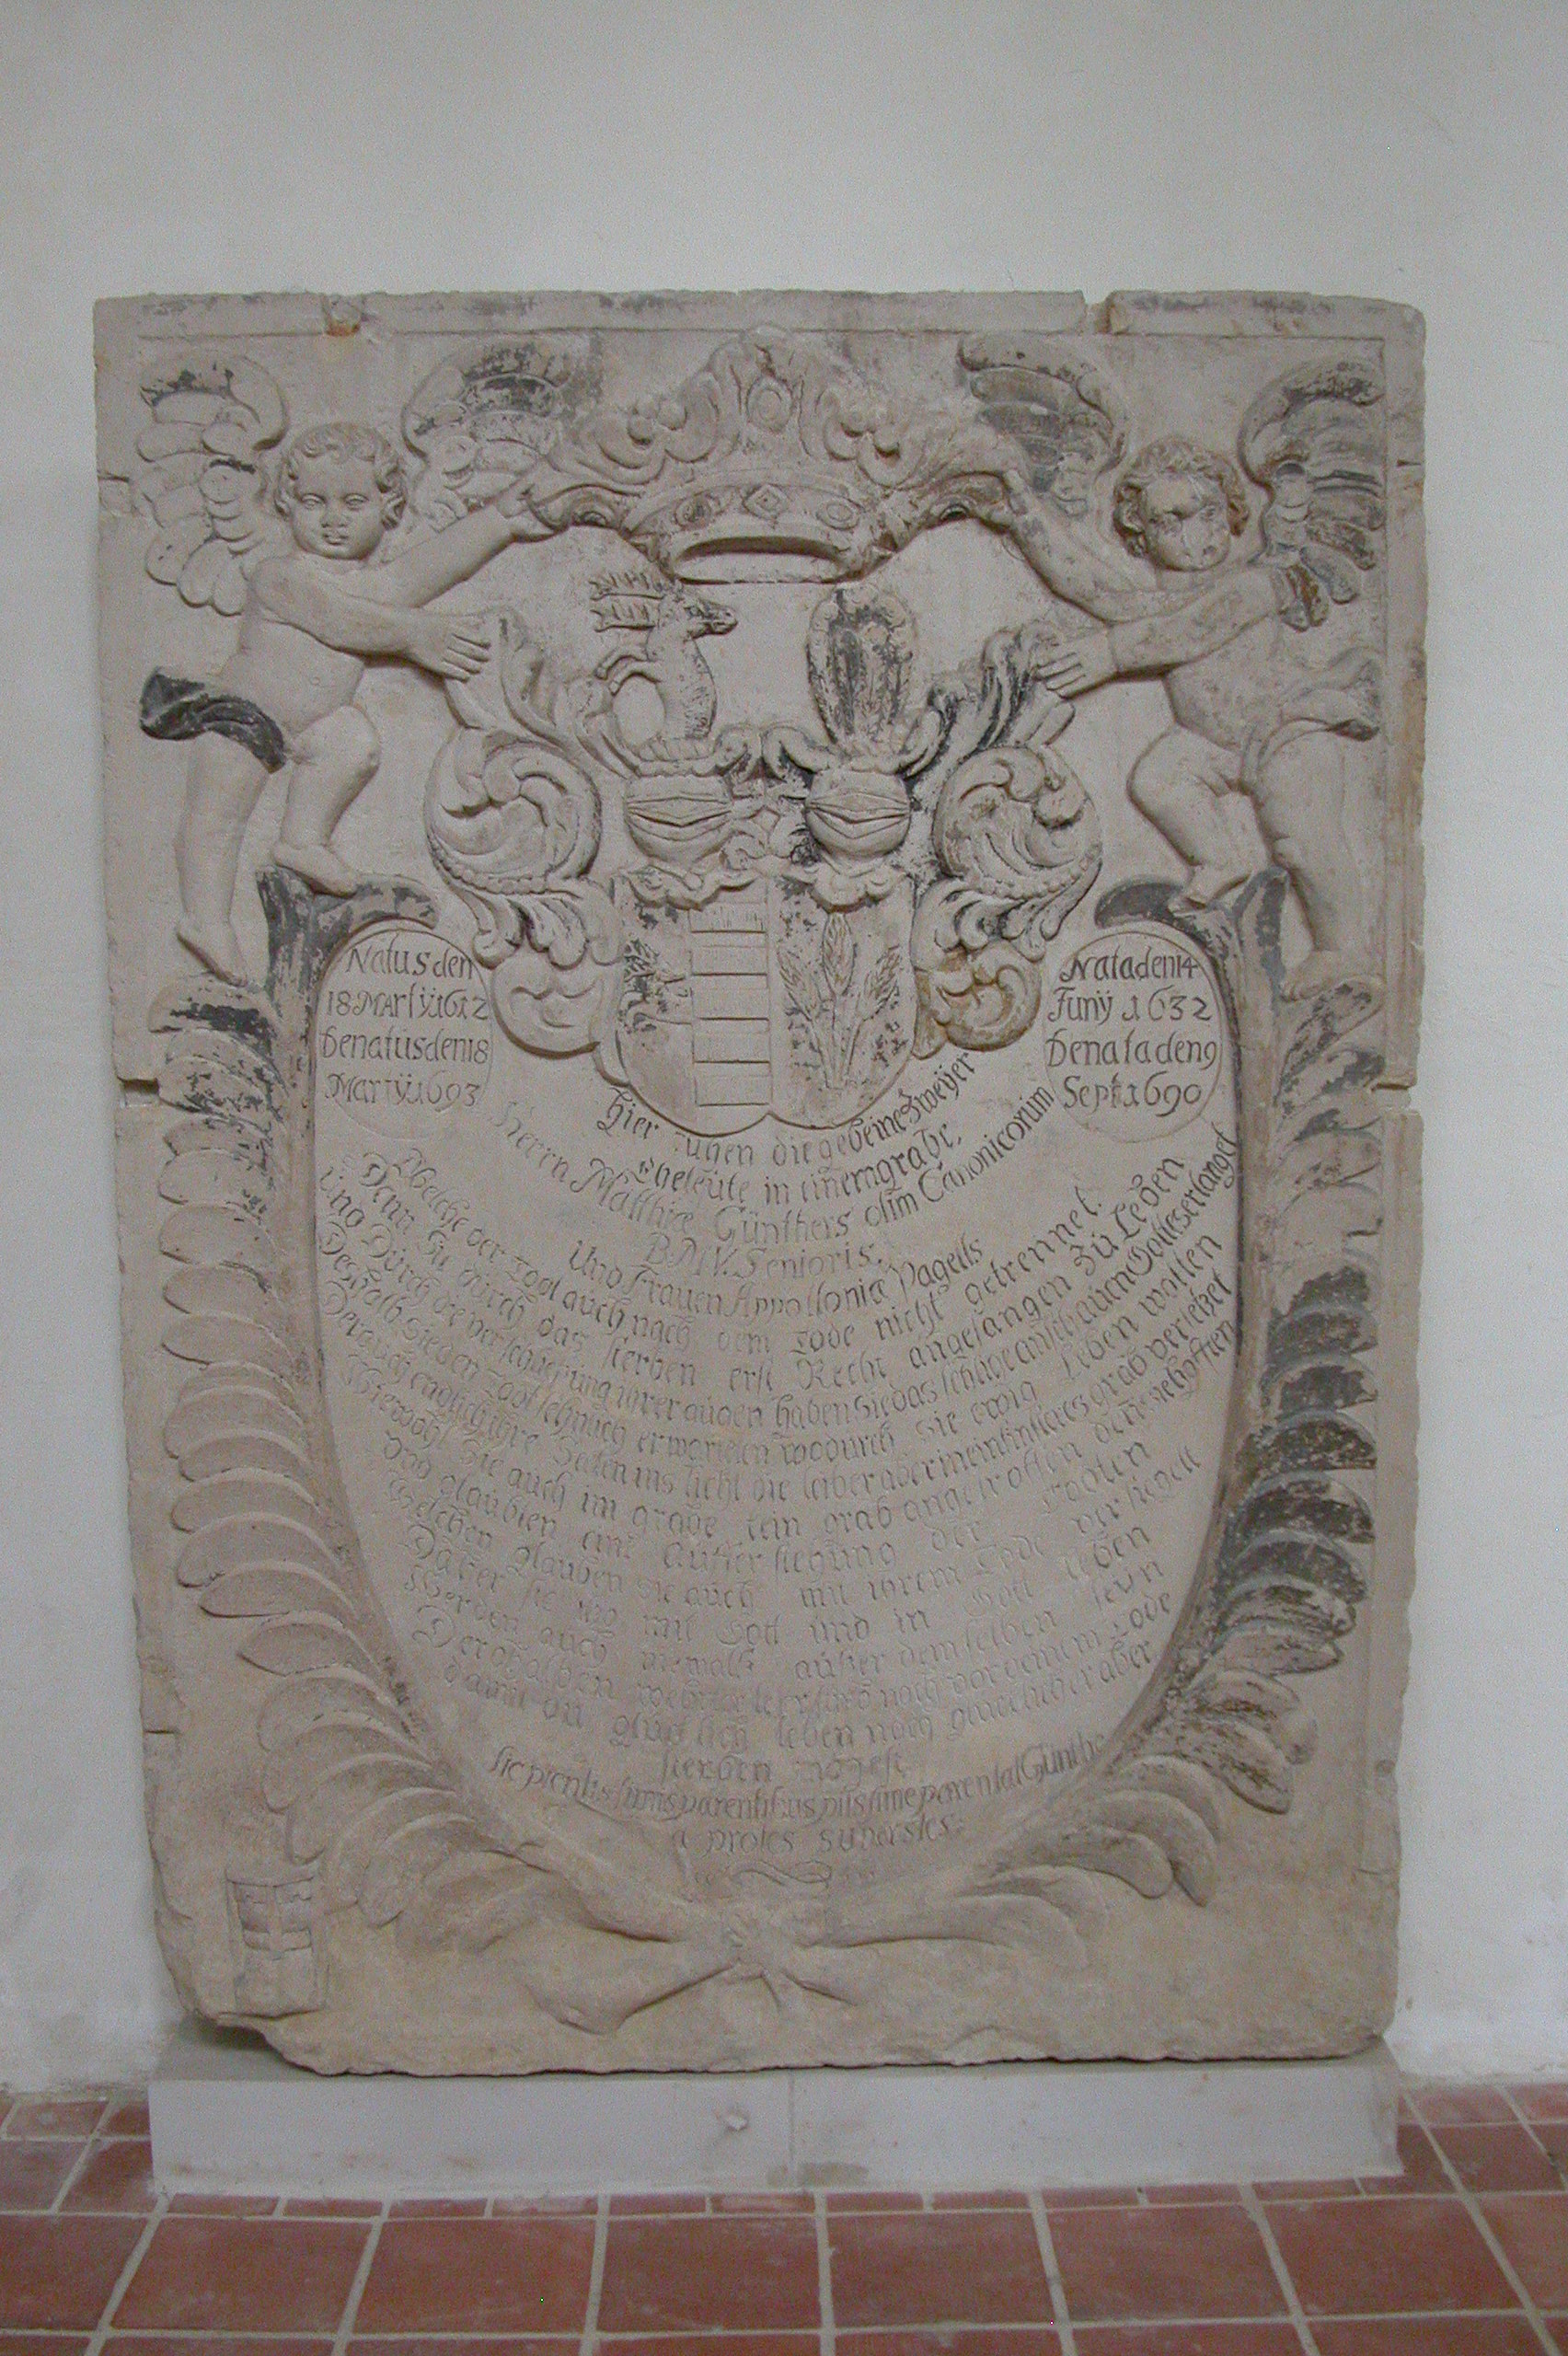 Natus den
18 Martÿ 1612
Denatus den 18
Martÿ 1693
Nata den 14
Junÿ 1632
Denata den 9
Sept: 1690
Hier ruhen die gebeine Zweÿer
Eheleüte in einem grabe,
Herrn Matthiæ Günthers olim Canonicorum
B.M.V. Senioris,
Und Frauen Appolloniæ Pageils
Welche der Todt auch nach dem Tode nicht getrennet.
Denn Sie durch das sterben erst Recht angefangen Zu Leben
Und Dürch die verschließung ihrer augen haben Sie das seligeanschauen Gottes erlanget
Deshalb Sie den Todt sehnlich erwarteten wodurch Sie ewig Leben wolten
Der auch endlich ihre Seelen ins licht die leiber aber in ein finsteres grab versetzet
Wiewohl Sie auch im grabe kein grab angetroffen denn sie hofften
Und glaubten eine aufferstehung der Todten
Welchen glauben sie auch mit ihrem Tode versiegelt
Daher sie wo mit Gott und in Gott leben
Werden auch niemalß außer demselben seyn
Derohalben lerne noch vor deinem Tode
Damit du glücklich leben noch glücklicher aber
sterben mögest
Sic pientissimis parentibus piissime parentat Günthe
a proles superstes.